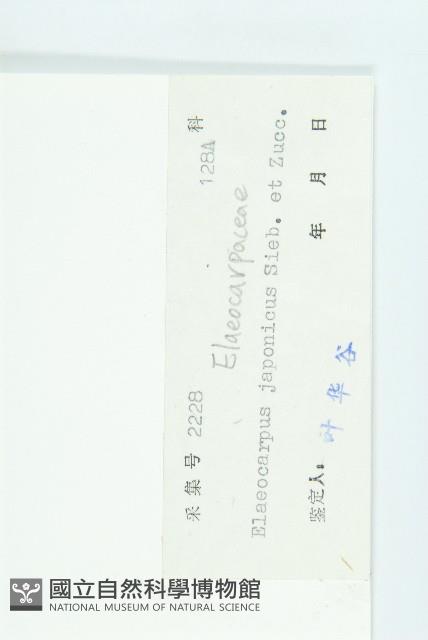 采集号 2228 128A 科
Elaeocarpaceae
Elaeocarpus japonicus Sieb. et Zucc.
鉴定人: 叶华谷 年 月 日
國立自然科學博物館
NATIONAL MUSEUM OF NATURAL SCIENCE